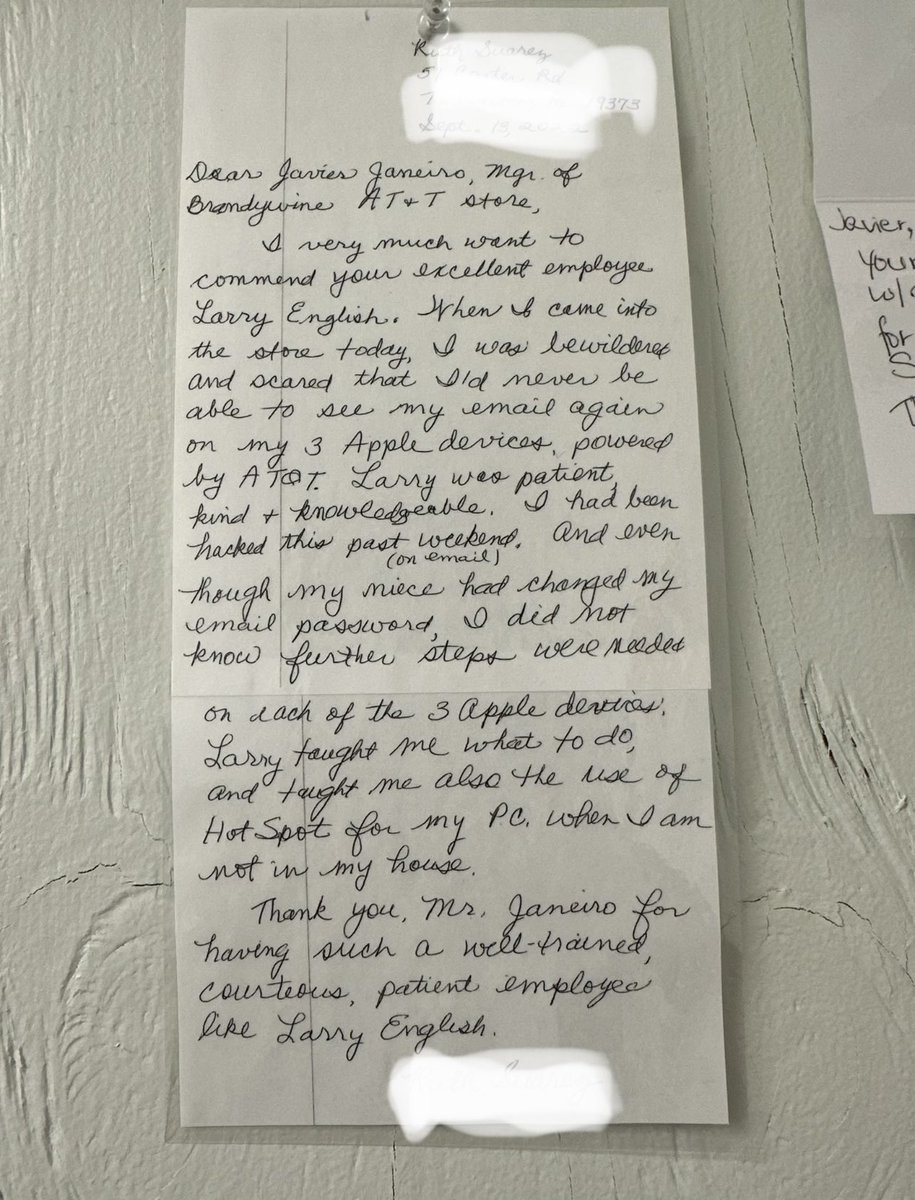 Dear Javier Janeiro, Mgr. of
Brandywine AT&T store,
I very much want to
commend your excellent employee
Larry English. When I came into
the store today, I was bewildered
and scared that I'd never be
able to see my email again
on my 3 Apple devices, powered
by AT&T. Larry was patient,
kind + knowledgeable. I had been
hacked this past weekend. And even
(on email)
though my niece had changed my
email password, I did not
know further steps were needed
on each of the 3 Apple devices.
Larry taught me what to do,
and taught me also the use of
Hot Spot for my P.C. when I am
not in my house.
Thank you, Mr. Janeiro for
having such a well-trained,
courteous, patient employee
like Larry English.
Javier,
your
for